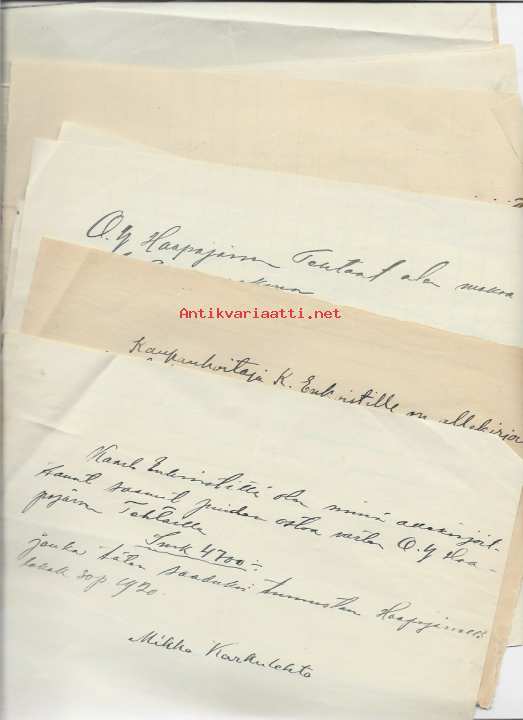 O.Y Haapajärven Tehtaat olen
Antikvariaatti.net
Kaupanhoitaja K. Enkvistille on allekirjoi
olen minä allekirjoit-
tanut saanut puiden ostoa varten O.Y Haa-
pajärven Tehtailla
Smk 4700:-
jonka täten saaduksi tunnustan Haapajärvellä
30 p 1920.
Mikko Karkulehto